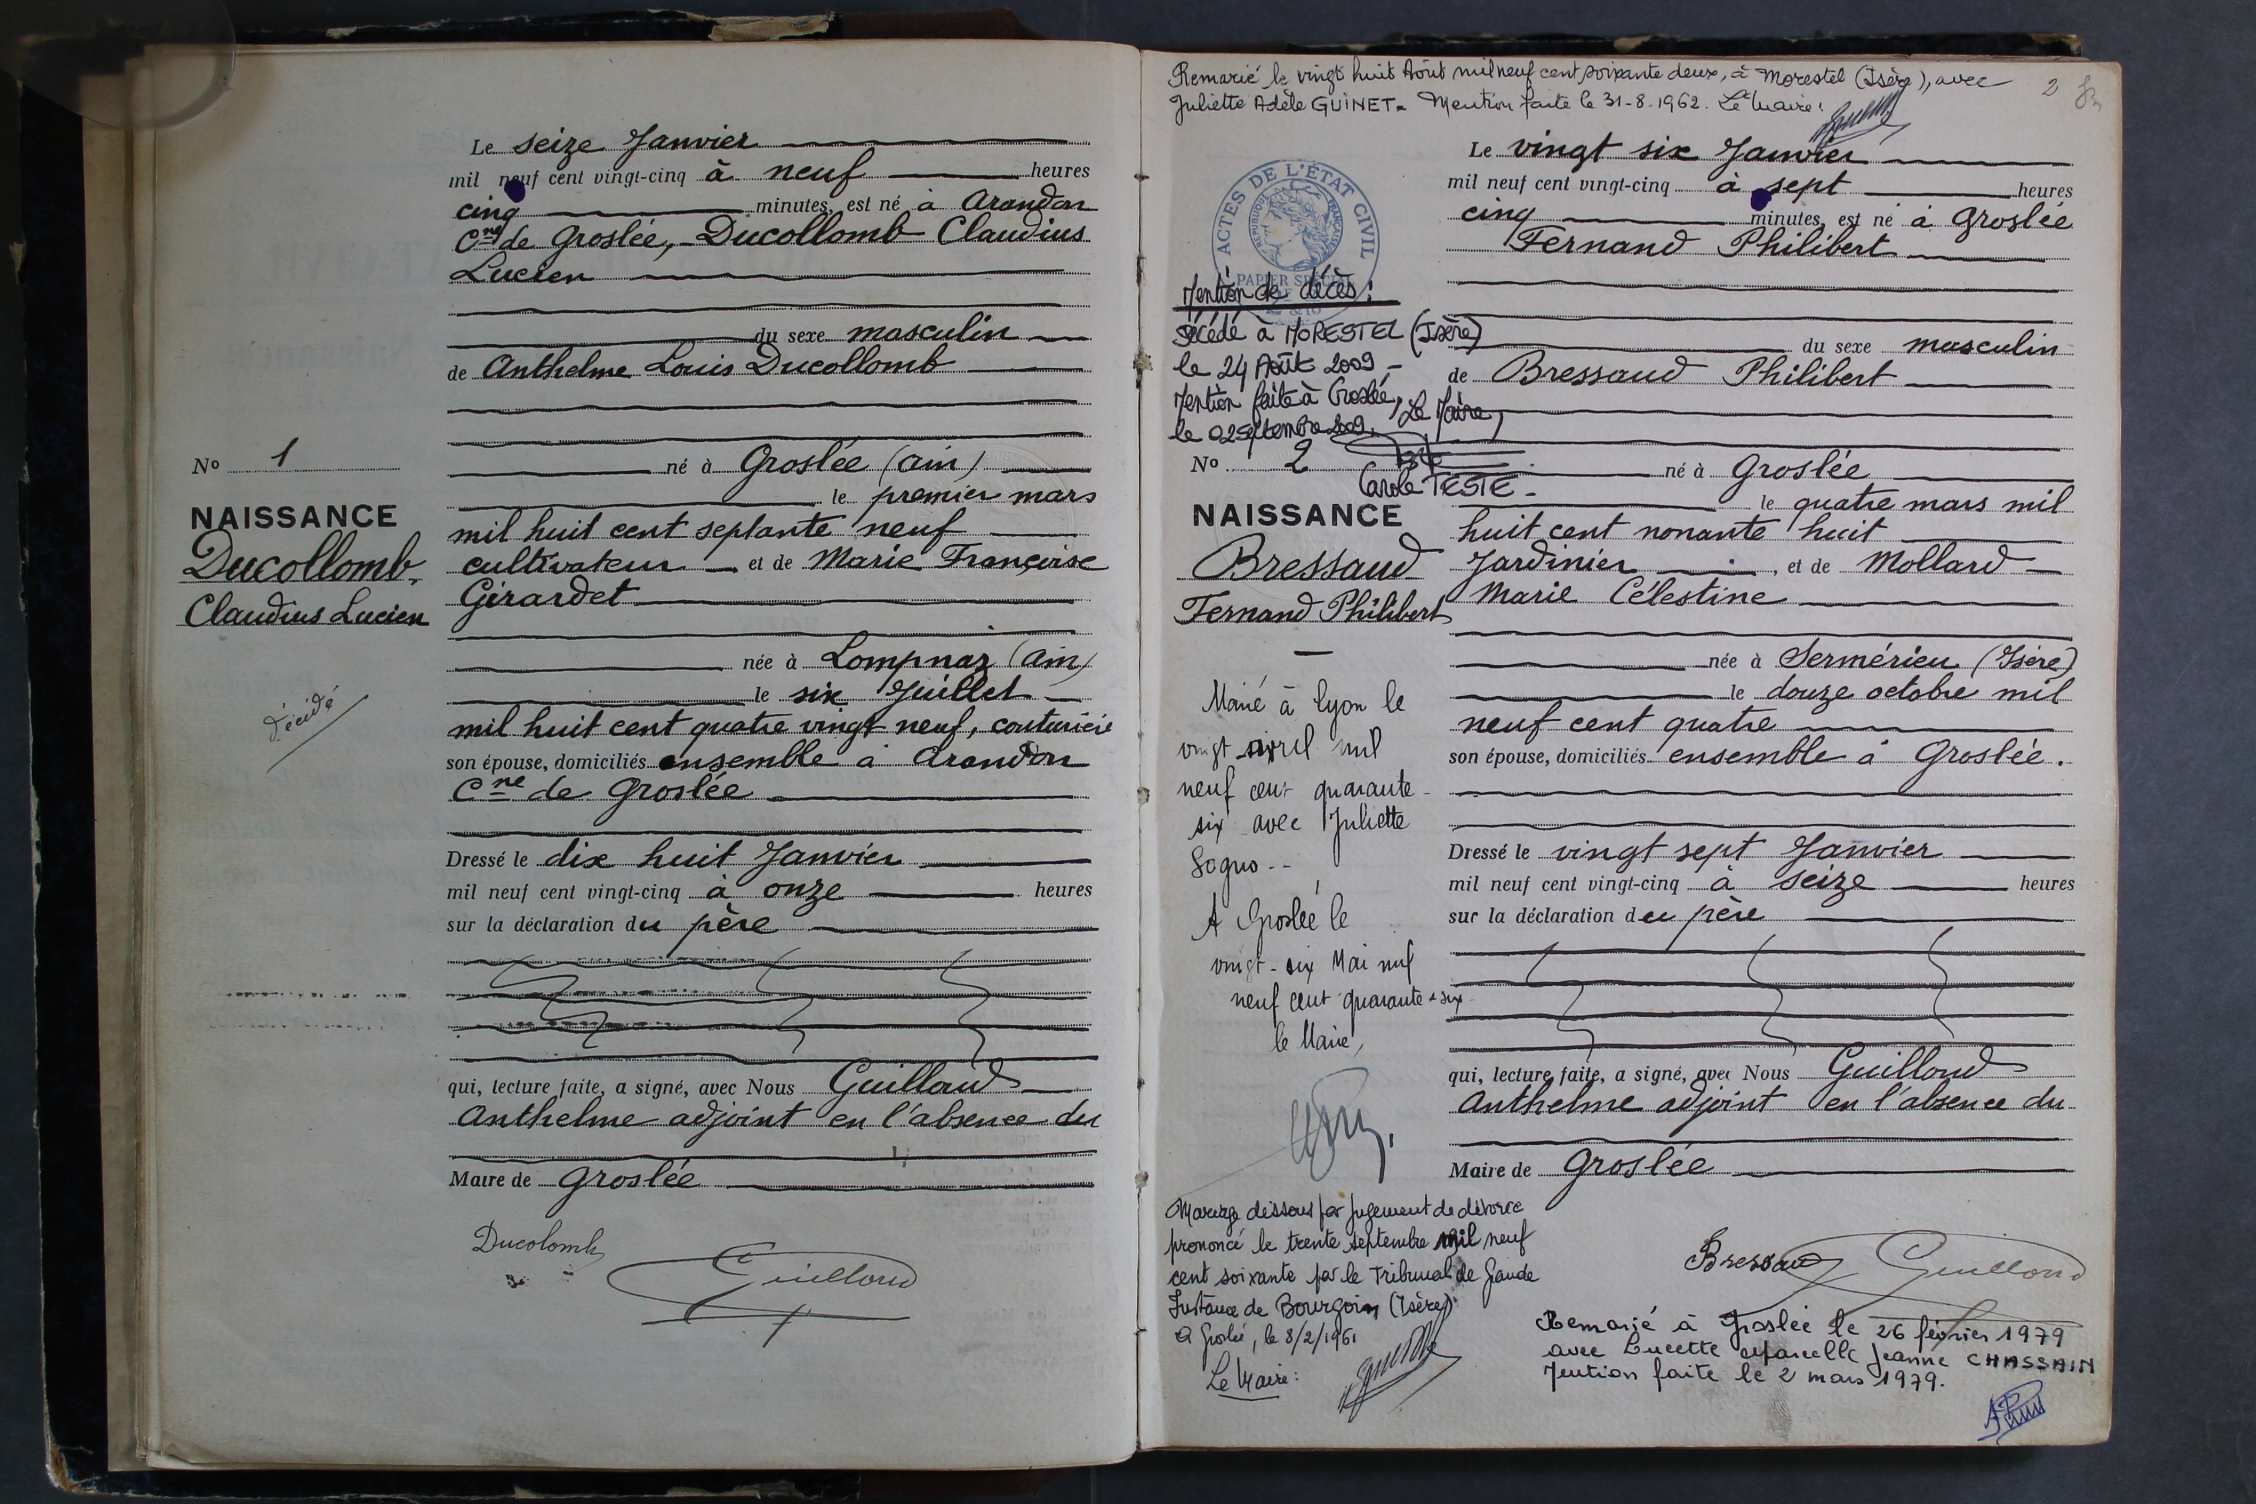 Le seize Janvier
mil neuf cent vingt-cinq à neuf heures
cinq minutes, est né à Arandon
Cne de Groslée, Ducollomb Claudius
Lucien
du sexe masculin
de Anthelme Louis Ducollomb
né à Groslée (Ain)
le premier mars
mil huit cent septante neuf
cultivateur et de Marie Françoise
Girardet
née à Lompnaz (Ain)
le six Juillet
mil huit cent quatre vingt neuf, couturière
son épouse, domiciliés ensemble à Arandon
Cne de Groslée
Dressé le dix huit Janvier
mil neuf cent vingt-cinq à onze heures
sur la déclaration du père
qui, lecture faite, a signé, avec Nous Guilloud
Anthelme adjoint en l'absence du
Maire de Groslée
Ducolomb
Guilloud
No 1
NAISSANCE
Ducollomb
Claudius Lucien
décédé
Remarié le vingt huit Août mil neuf cent soixante deux, à Morestel (Isère), avec
Juliette Adèle GUINET. Mention faite le 31-8-1962. Le Maire:
2
Le vingt six Janvier
mil neuf cent vingt-cinq à sept heures
cinq minutes, est né à Groslée
Fernand Philibert
du sexe masculin
de Bressaud Philibert
né à Groslée
le quatre mars mil
huit cent nonante huit
Jardinier, et de Mollard
Marie Célestine
née à Sermérieu (Isère)
le douze octobre mil
neuf cent quatre
son épouse, domiciliés ensemble à Groslée.
Dressé le vingt sept Janvier
mil neuf cent vingt-cinq à seize heures
sur la déclaration du père
qui, lecture faite, a signé, avec Nous Guilloud
Anthelme adjoint en l'absence du
Maire de Groslée
Bressaud Guilloud
Remarié à Groslée le 26 février 1979
avec Lucette Marcelle Jeanne CHASSAIN
Mention faite le 2 mars 1979.
ACTES DE L'ÉTAT CIVIL
RÉPUBLIQUE FRANÇAISE
PAPIER SPÉCIAL
Mention de décès:
Décédé à MORESTEL (Isère)
le 24 Août 2009 -
Mention faite à Groslée,
le 02 Septembre 2009, Le Maire,
Carole TESTE.
No 2
NAISSANCE
Bressaud
Fernand Philibert
Marié à Lyon le
vingt avril mil
neuf cent quarante
six avec Juliette
Sogno --
A Groslée le
vingt-six Mai mil
neuf cent quarante-six
le Maire,
Mariage dissous par jugement de divorce
prononcé le trente septembre mil neuf
cent soixante par le Tribunal de Grande
Instance de Bourgoin (Isère).
A Groslée, le 8/2/1961
Le Maire: